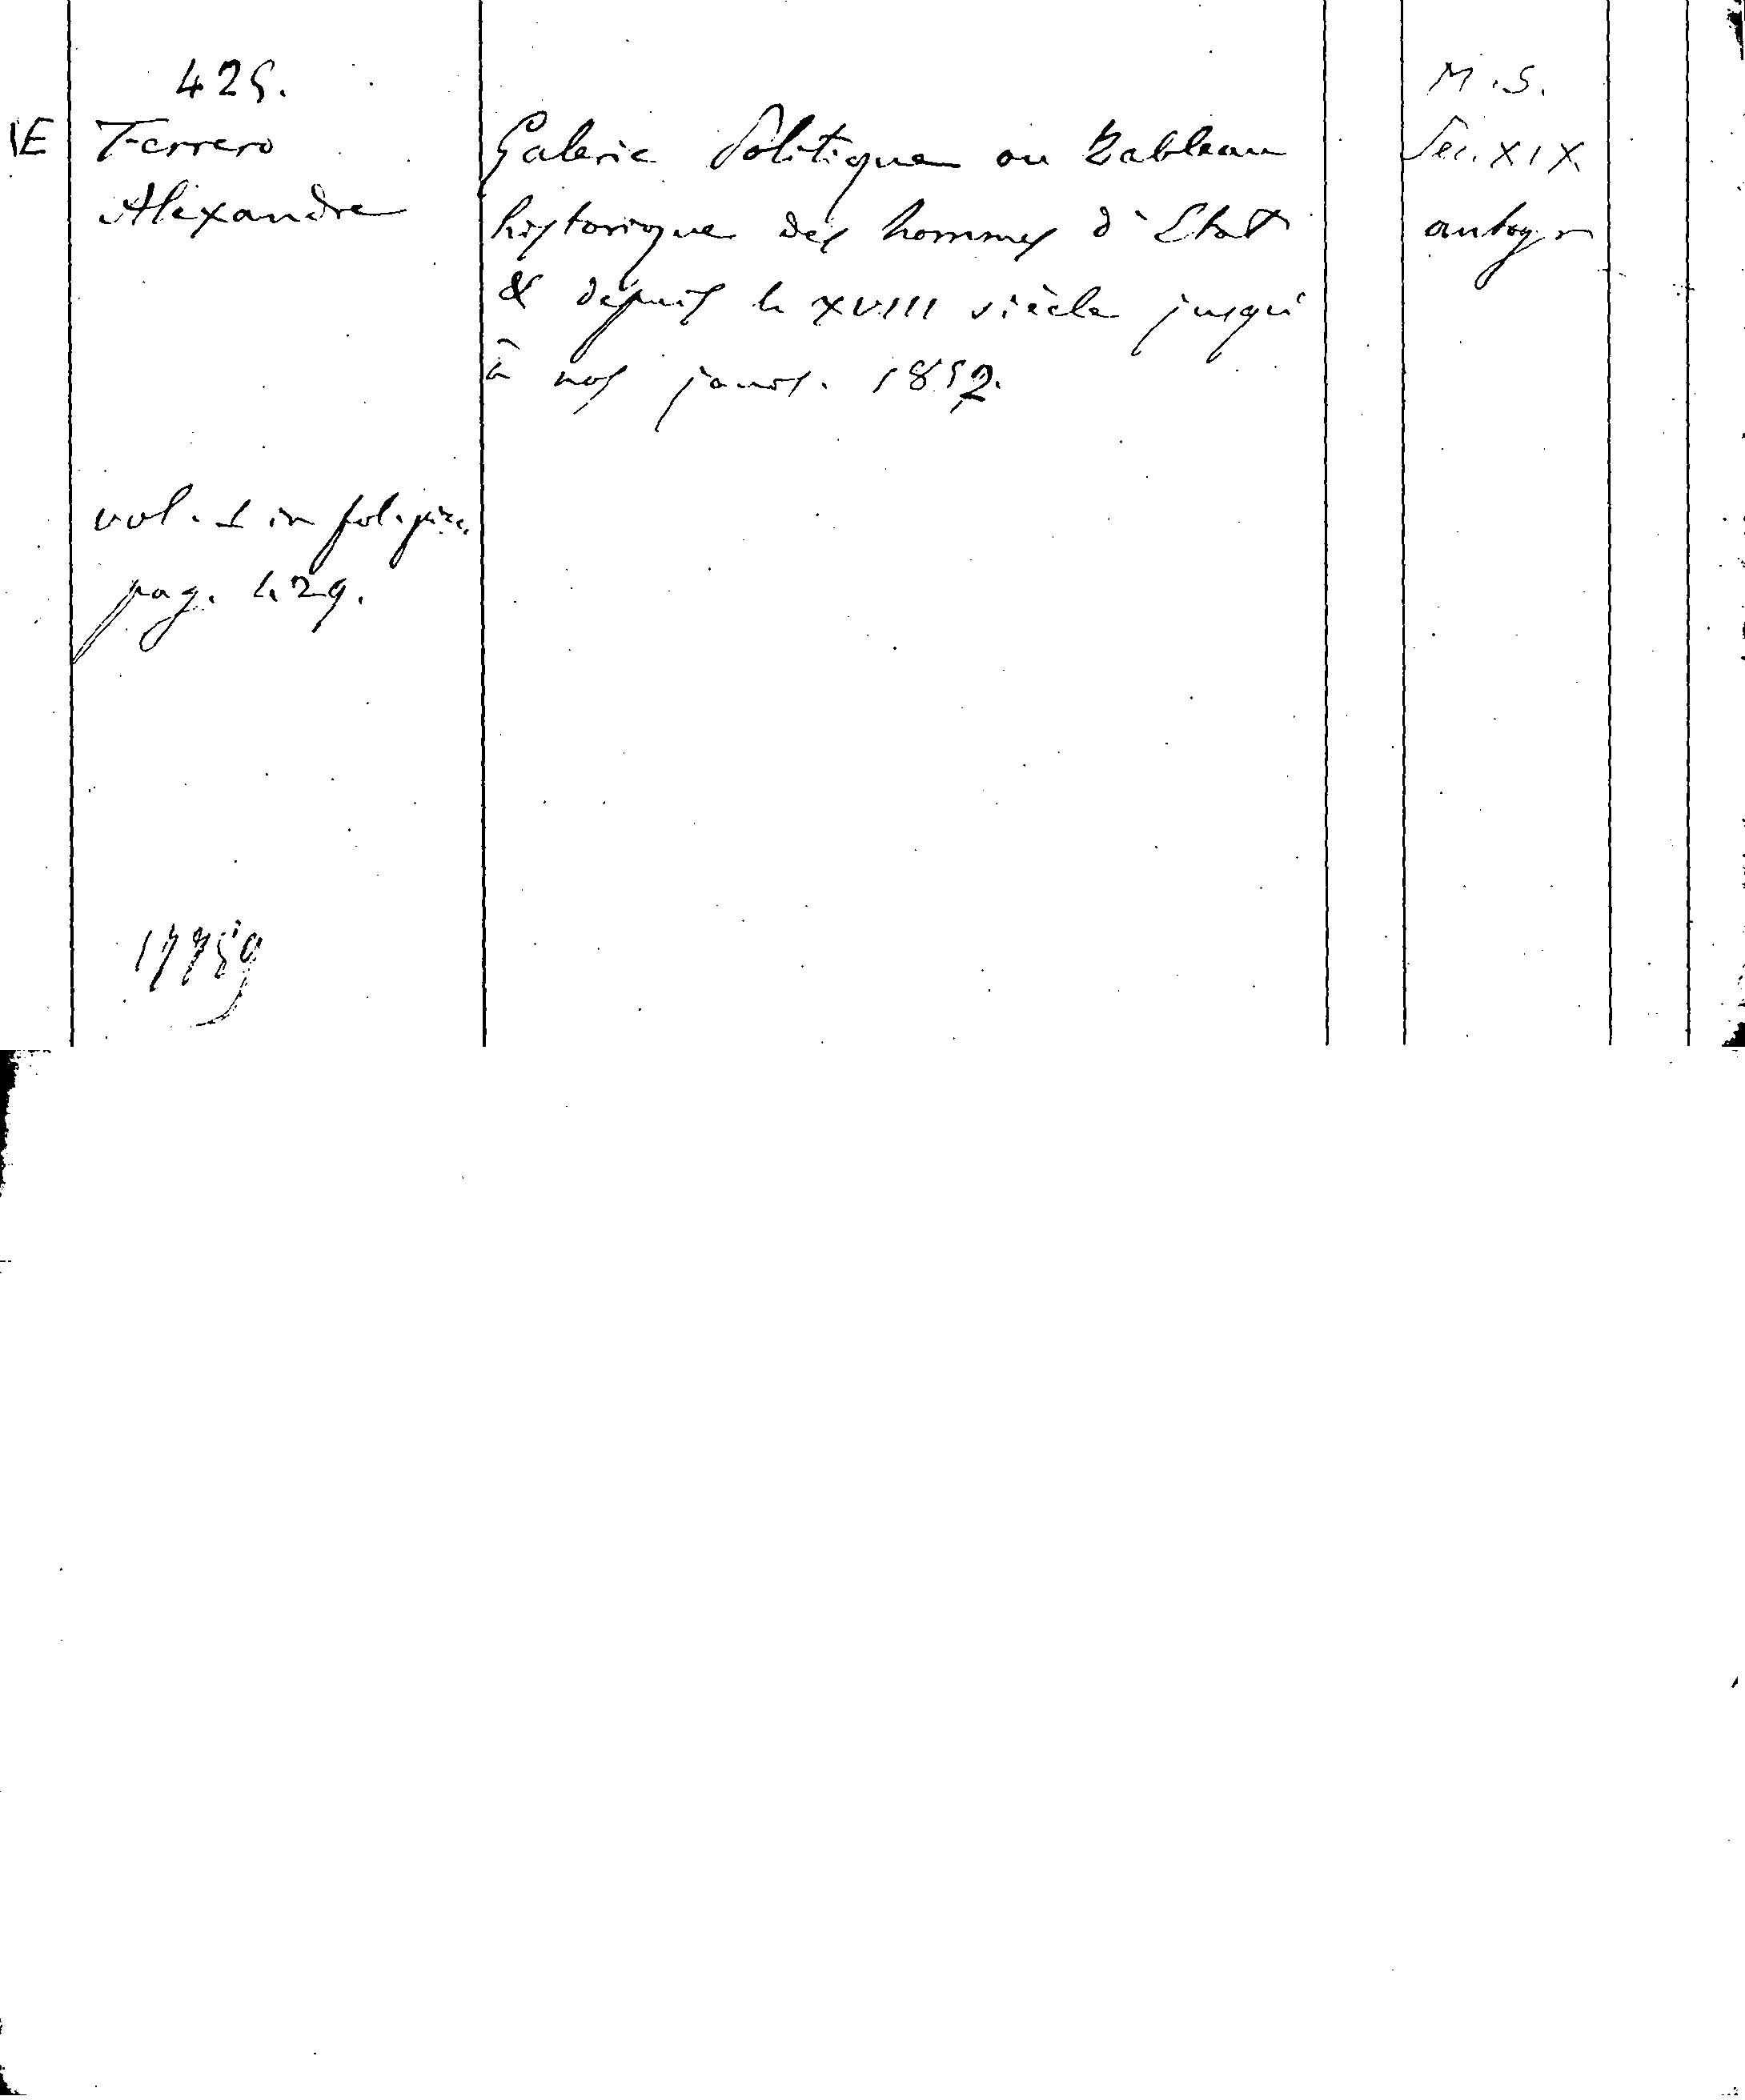 425.
Ferrero
Alexandre
vol. 1 in fol. picc.
pag. 429.
17759
Galerie Politique ou Tableau
historique des hommes d'Etat
& depuis le XVIII siècle jusqu'
à nos jours. 1852.
M.S.
Sec. XIX
autogr